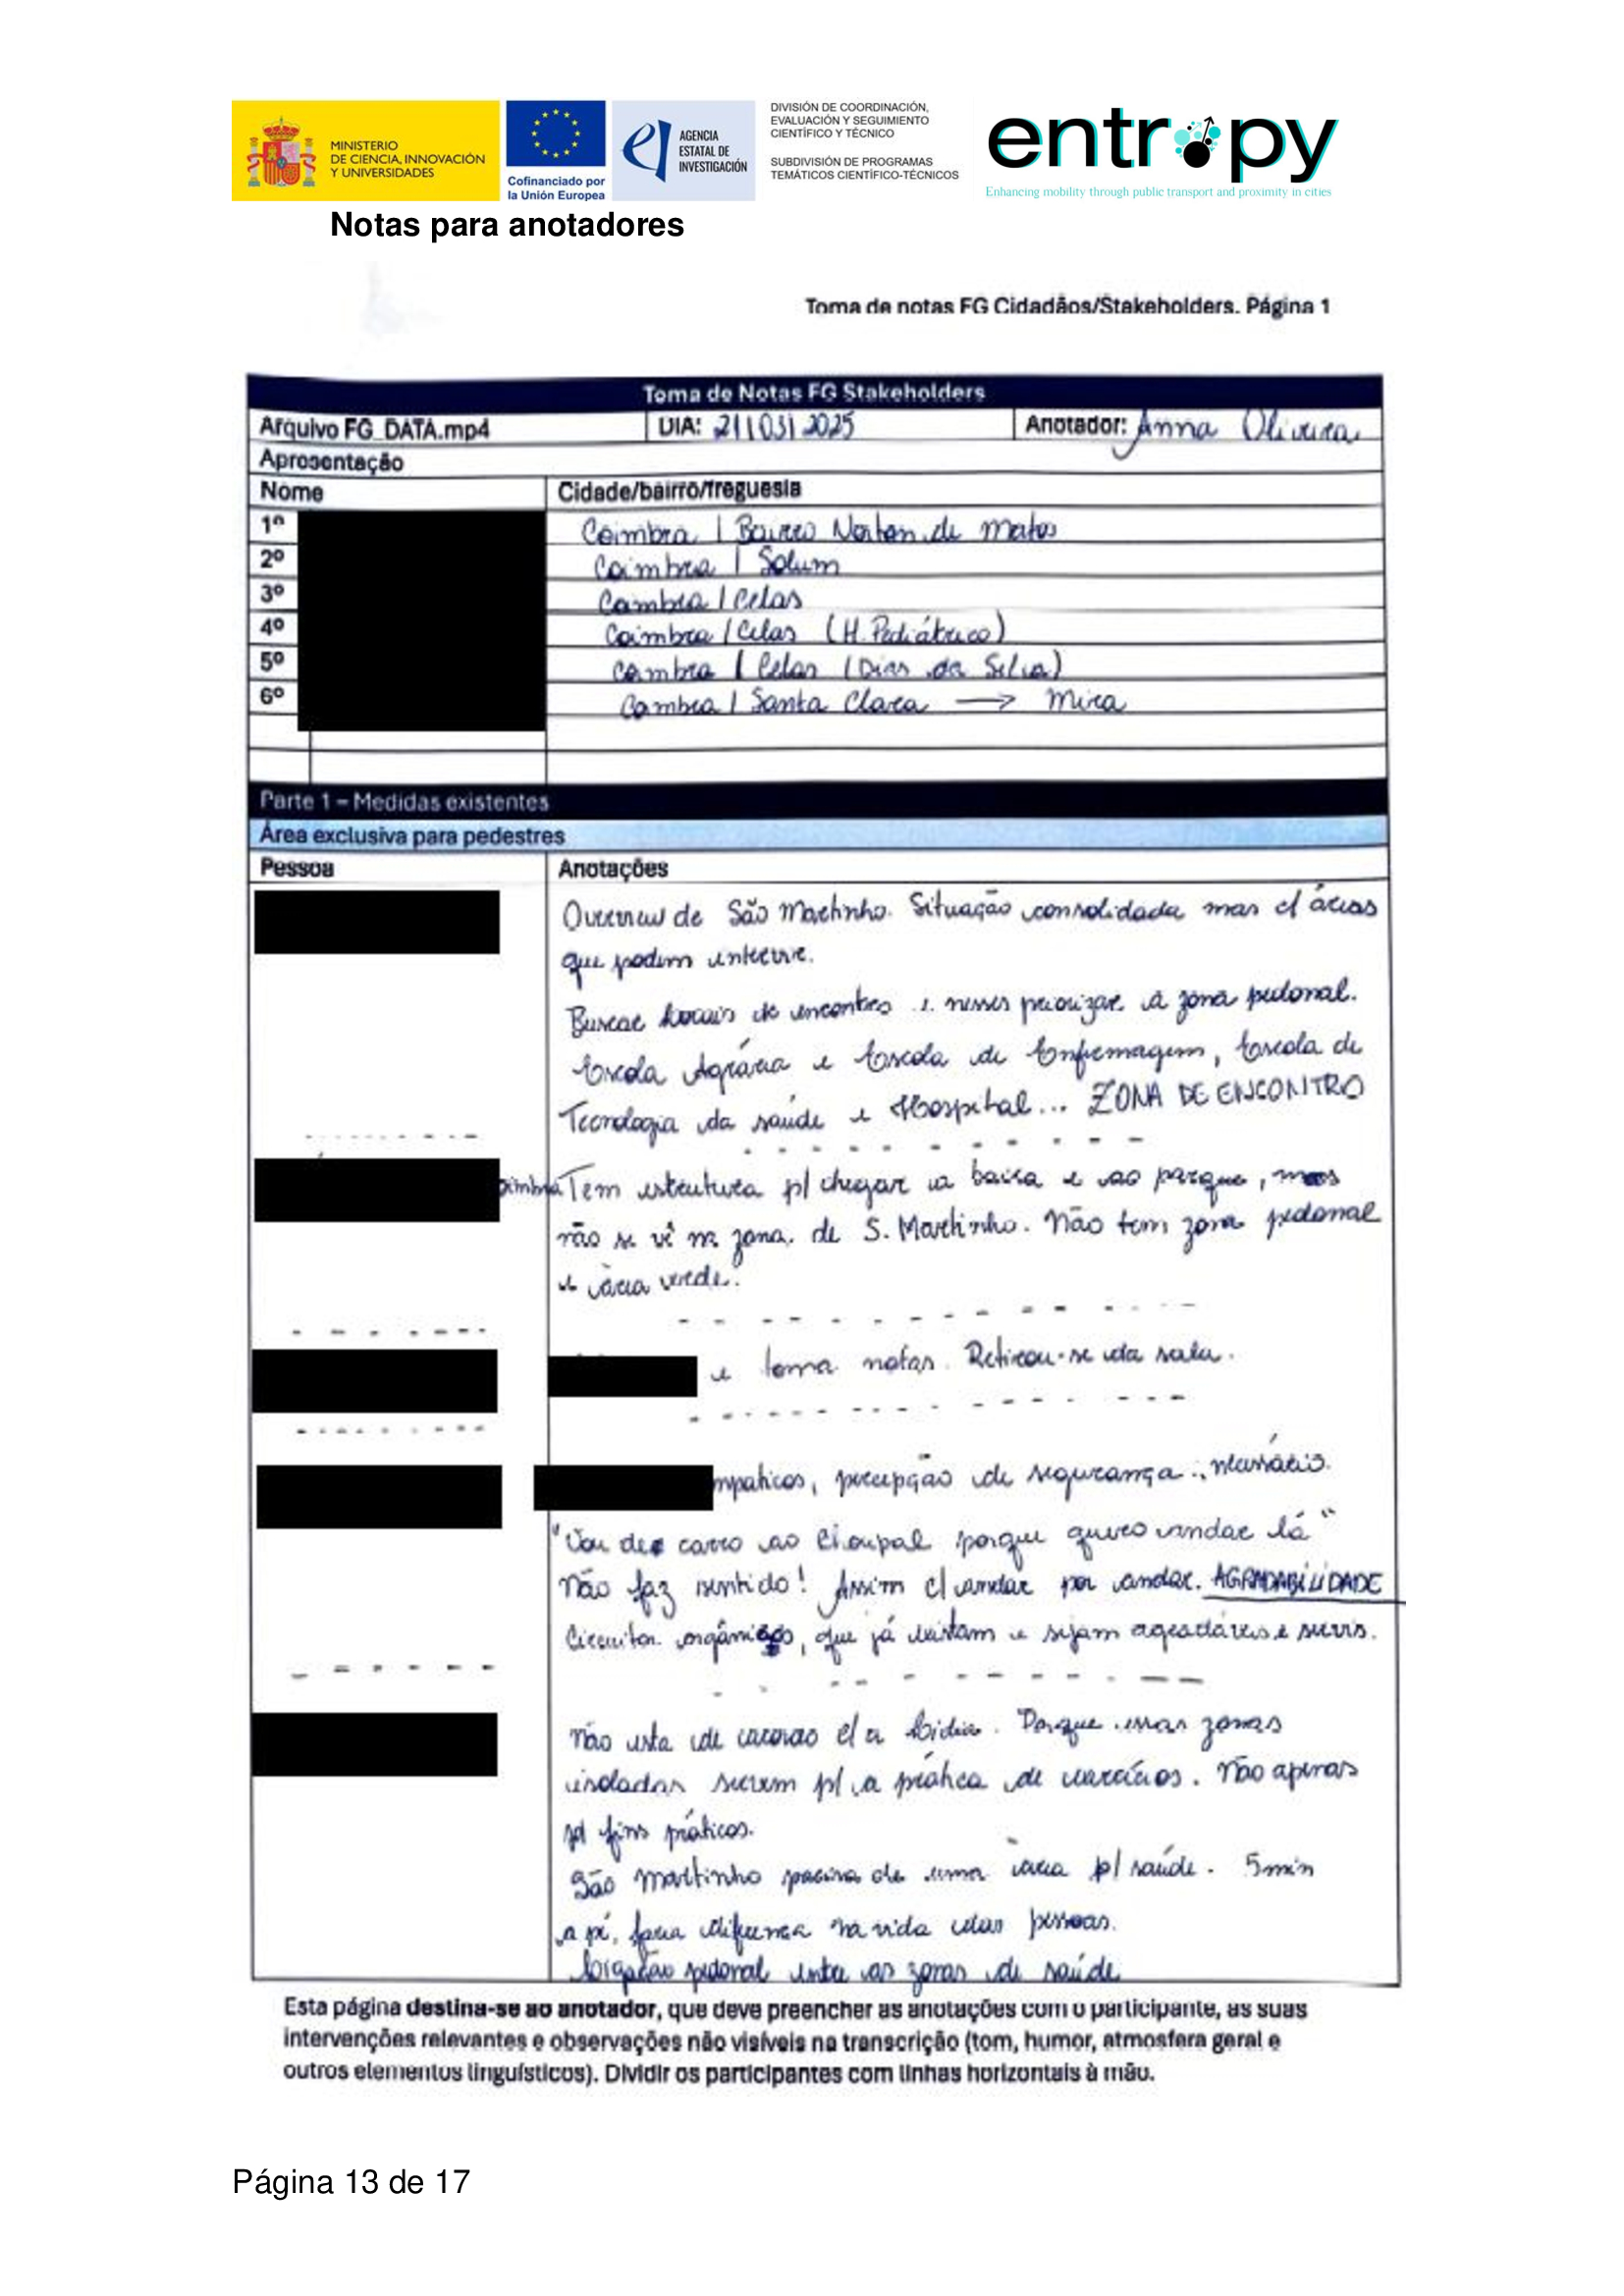 MINISTERIO
DE CIENCIA, INNOVACIÓN
Y UNIVERSIDADES
Cofinanciado por
la Unión Europea
AGENCIA
ESTATAL DE
INVESTIGACIÓN
DIVISIÓN DE COORDINACIÓN,
EVALUACIÓN Y SEGUIMIENTO
CIENTÍFICO Y TÉCNICO
SUBDIVISIÓN DE PROGRAMAS
TEMÁTICOS CIENTÍFICO-TÉCNICOS
entropy
Enhancing mobility through public transport and proximity in cities
Notas para anotadores
Toma de notas FG Cidadãos/Stakeholders. Página 1
Toma de Notas FG Stakeholders
Arquivo FG_DATA.mp4 DIA: 21|03|2025 Anotador: Anna Oliveira
Apresentação
Nome Cidade/bairro/freguesia
1º Coimbra | Bairro Norton de Matos
2º Coimbra | Solum
3º Coimbra / Celas
4º Coimbra / Celas (H. Pediátrico)
5º Coimbra | Celas (Dias da Silva)
6º Coimbra / Santa Clara → Mira
Parte 1 – Medidas existentes
Área exclusiva para pedestres
Pessoa Anotações
de São Martinho. Situação consolidada mas c/ áreas
que podem intervir.
Buscar locais de encontro e nesses priorizar a zona pedonal.
Escola Agrária e Escola de Enfermagem, Escola de
Tecnologia da saúde e Hospital... ZONA DE ENCONTRO
oimbra Tem estrutura p/ chegar a baixa e ao parque, mas
não se vê na zona de S. Martinho. Não tem zona pedonal
e área verde.
e toma notas. Retirou-se da sala.
mpaticos, percepção de segurança necessário.
"Vou de carro ao Choupal porque quero andar lá"
Não faz sentido! Assim c/ andar por andar. AGRADABILIDADE
Circuitos orgânicos, que já existam e sejam agradáveis e
Não esta de acordo c/ a Lidia. Porque essas zonas
isoladas servem p/ a prática de exercícios. Não apenas
p/ fins práticos.
São Martinho precisa de uma área p/ saúde. 5min
a pé, faria diferença na vida das pessoas.
Ligação pedonal entre as zonas de saúde
Esta página destina-se ao anotador, que deve preencher as anotações com o participante, as suas
intervenções relevantes e observações não visíveis na transcrição (tom, humor, atmosfera geral e
outros elementos linguísticos). Dividir os participantes com linhas horizontais à mão.
Página 13 de 17